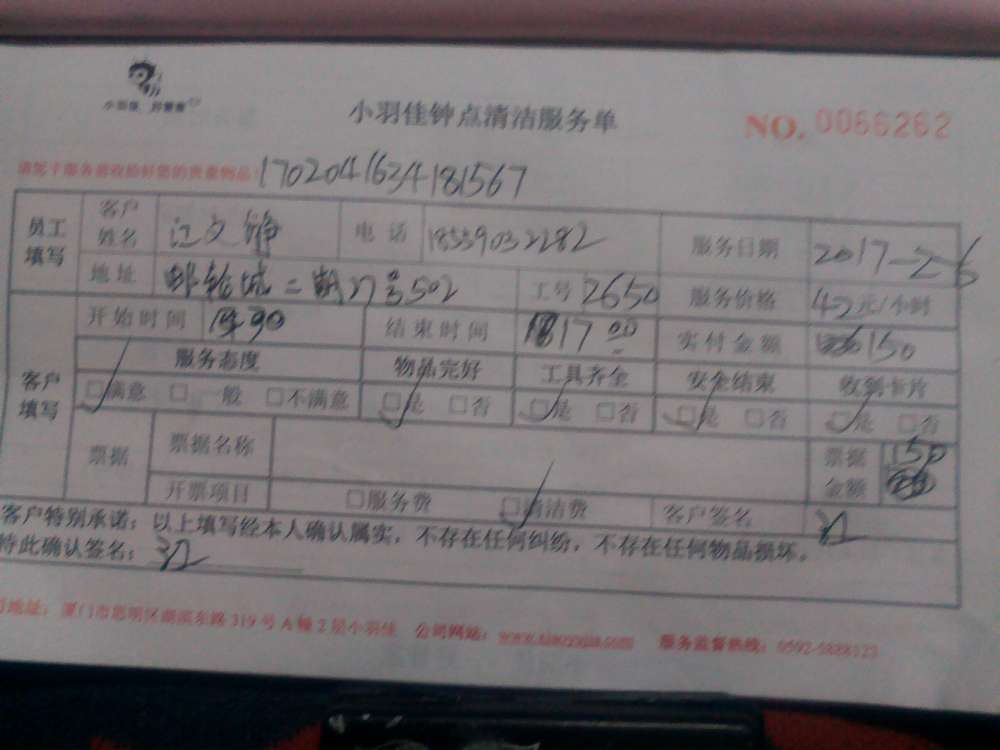 小羽佳钟点清洁服务单
NO. 0066262
请写下服务前收拾好您的贵重物品: 1702041634181567
员工填写 客户姓名 江文静 电话 18559032282 服务日期 2017-2-6
地址 邮轮城二期 502 工号 2650 服务价格 元/小时
客户填写 开始时间 结束时间 17 00 实付金额 150
服务态度 物品完好 工具齐全 安全结束 收到卡片
□满意 □一般 □不满意 □是 □否 □是 □否 □是 □否 □是 □否
票据 票据名称 票据金额 150
开票项目 □服务费 □清洁费 客户签名 江
客户特别承诺:以上填写经本人确认属实,不存在任何纠纷,不存在任何物品损坏。
特此确认签名: 江
地址: 厦门市思明区湖滨东路319号A幢2层小羽佳 公司网站: 服务监督热线: 0592-5888123